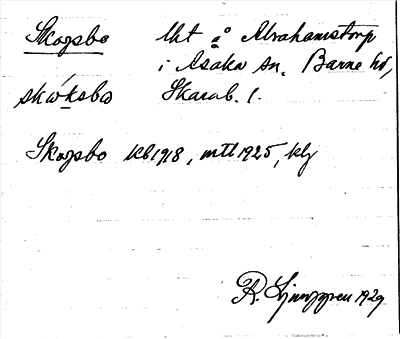 Skogsbo lht å Abrahamstorp
i Åsaka sn, Barne hd,
skωksbω Skarab. l.
Skogsbo kb 1918, mtl 1925, klj
R. Ljunggren 1929